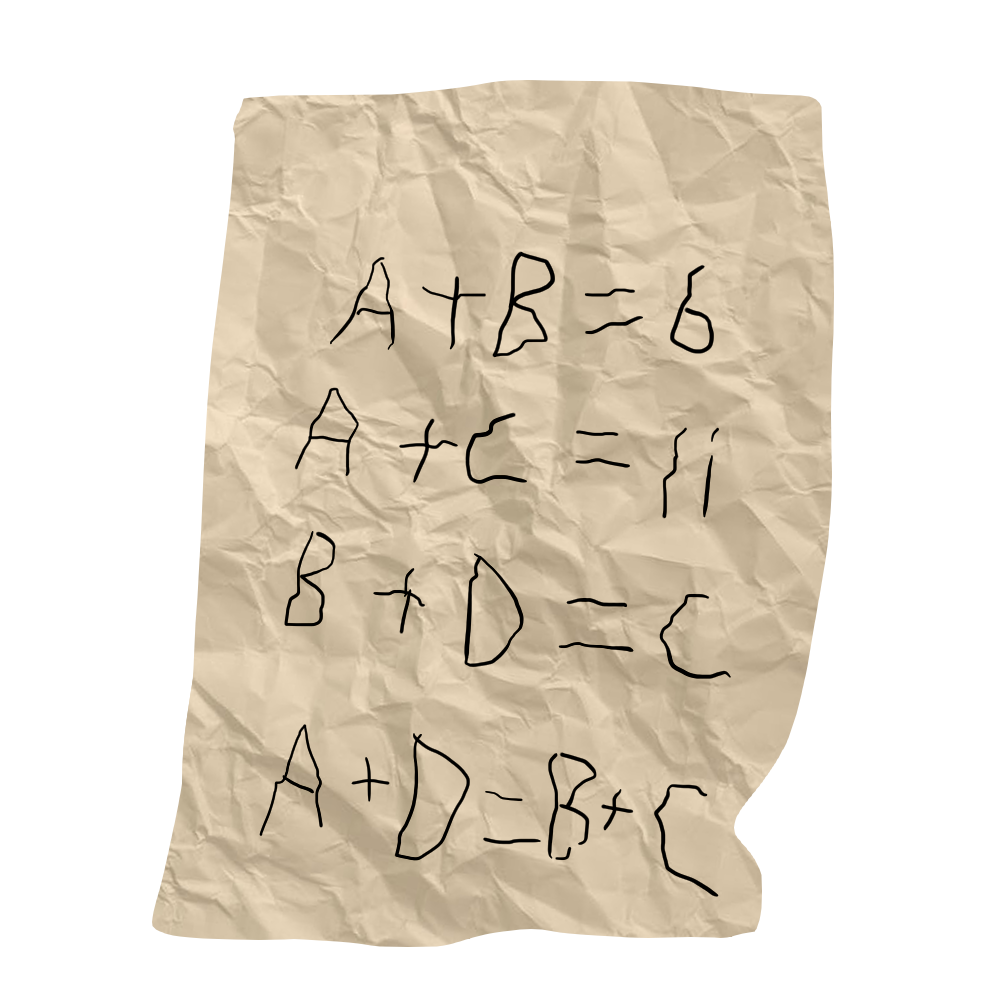 A+B=6
A+C=11
B+D=C
A+D=B+C